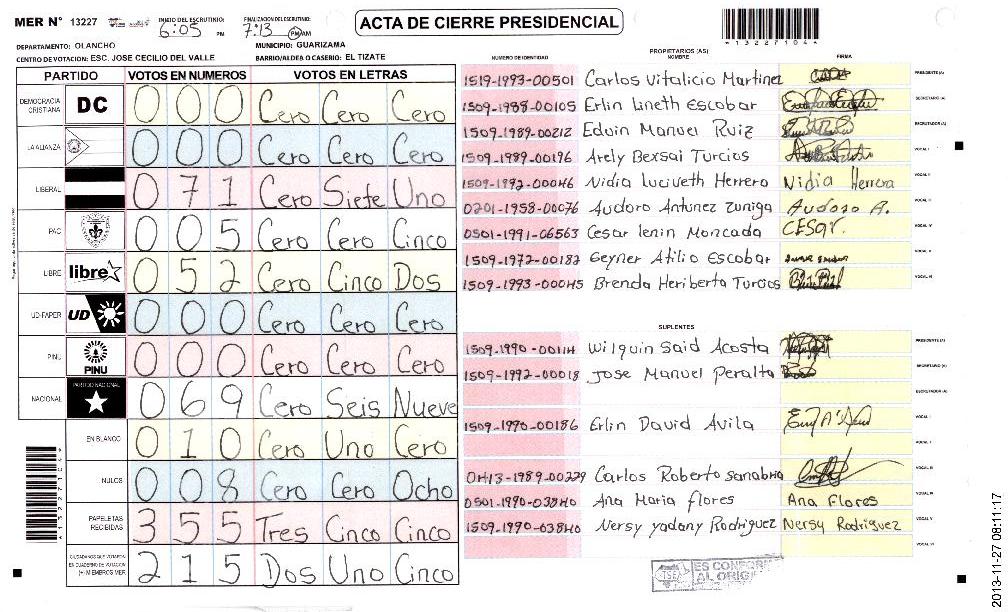 MER N° 13227
INICIO DEL ESCRUTINIO:
6:05 PM
FINALIZACION DEL ESCRUTINIO:
7:13 PM AM
ACTA DE CIERRE PRESIDENCIAL
*1322710 4*
DEPARTAMENTO: OLANCHO
MUNICIPIO: GUARIZAMA
CENTRO DE VOTACION: ESC. JOSE CECILIO DEL VALLE
BARRIO/ALDEA O CASERIO: EL TIZATE
PARTIDO VOTOS EN NUMEROS VOTOS EN LETRAS
DEMOCRACIA CRISTIANA DC 0 0 0 Cero Cero Cero
LA ALIANZA 0 0 0 Cero Cero Cero
LIBERAL 0 7 1 Cero Siete Uno
PAC 0 0 5 Cero Cero Cinco
LIBRE libre 0 5 2 Cero Cinco Dos
UD-FAPER UD 0 0 0 Cero Cero Cero
PINU PINU 0 0 0 Cero Cero Cero
NACIONAL PARTIDO NACIONAL 0 6 9 Cero Seis Nueve
EN BLANCO 0 1 0 Cero Uno Cero
NULOS 0 0 8 Cero Cero Ocho
PAPELETAS RECIBIDAS 3 5 5 Tres Cinco Cinco
CIUDADANOS QUE VOTARON EN CUADERNO DE VOTACION (+) MIEMBROS MER 2 1 5 Dos Uno Cinco
PROPIETARIOS (AS)
NUMERO DE IDENTIDAD NOMBRE FIRMA
1519-1993-00501 Carlos Vitalicio Martinez PRESIDENTE (A)
1509-1988-00105 Erlin Lineth Escobar SECRETARIO (A)
1509-1989-00212 Edwin Manuel Ruiz ESCRUTADOR (A)
1509-1989-00196 Arely Bexsai Turcios VOCAL I
1509-1992-00046 Nidia Luciveth Herrero Nidia Herrera VOCAL II
0201-1958-00076 Audoro Antunez Zuniga Audoro A. VOCAL III
0501-1991-06563 Cesar lenin Moncada CESAr. VOCAL IV
1509-1972-00182 Geyner Atilio Escobar VOCAL V
1509-1993-00045 Brenda Heriberta Turcios VOCAL VI
SUPLENTES
1509-1990-00114 Wilquin Said Acosta PRESIDENTE (A)
1509-1992-00018 Jose Manuel Peralta SECRETARIO (A)
ESCRUTADOR (A)
1509-1990-00186 Erlin David Avila VOCAL I
VOCAL II
0413-1989-00229 Carlos Roberto Sanabria VOCAL III
0501-1990-03840 Ana Maria flores Ana Flores VOCAL IV
1509-1990-03840 Nersy yadany Rodriguez Nersy Rodriguez VOCAL V
VOCAL VI
TSE ES CONFORME AL ORIGI
2013-11-27 08:11:17